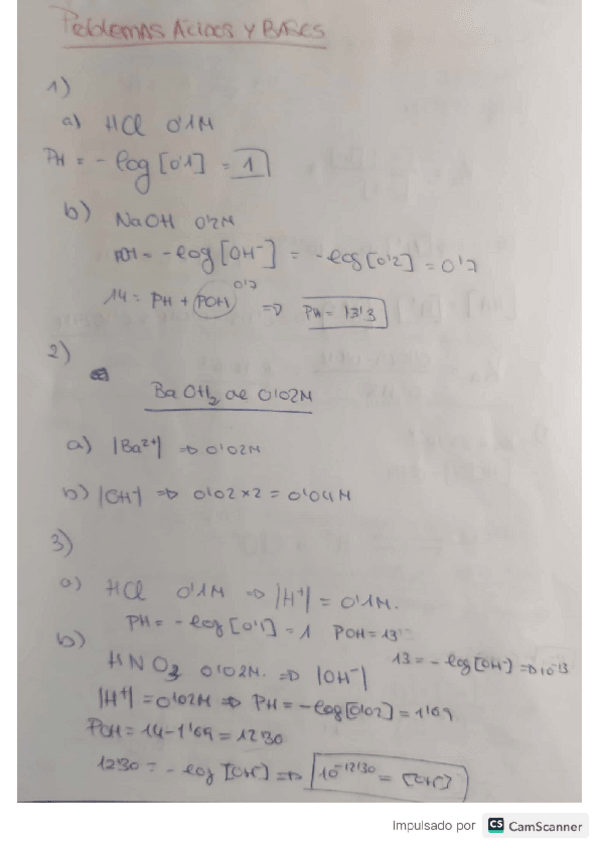 Problemas Ácidos y Bases
1)
a) HCl 0'1M
PH = - log [0'1] = 1
b) NaOH 0'2M
POH = - log [OH⁻] = - log [0'2] = 0'7
14 = PH + POH 0'7 => PH = 13'3
2)
Ba OH₂ de 0'02M
a) |Ba²⁺| => 0'02M
b) |OH⁻| => 0'02 x 2 = 0'04M
3)
a) HCl 0'1M => |H⁺| = 0'1M.
PH = - log [0'1] = 1 POH = 13
13 = - log [OH⁻] => 10⁻¹³
b)
HNO₃ 0'02M. => |OH⁻|
|H⁺| = 0'02M => PH = - log [0'02] = 1'69
POH = 14 - 1'69 = 12'30
12'30 = - log [OH⁻] => 10⁻¹²'³⁰ = [OH⁻]
Impulsado por CS CamScanner